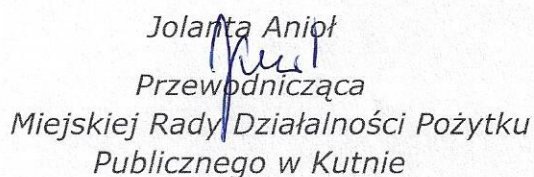 Jolanta Anioł
Przewodnicząca
Miejskiej Rady Działalności Pożytku
Publicznego w Kutnie